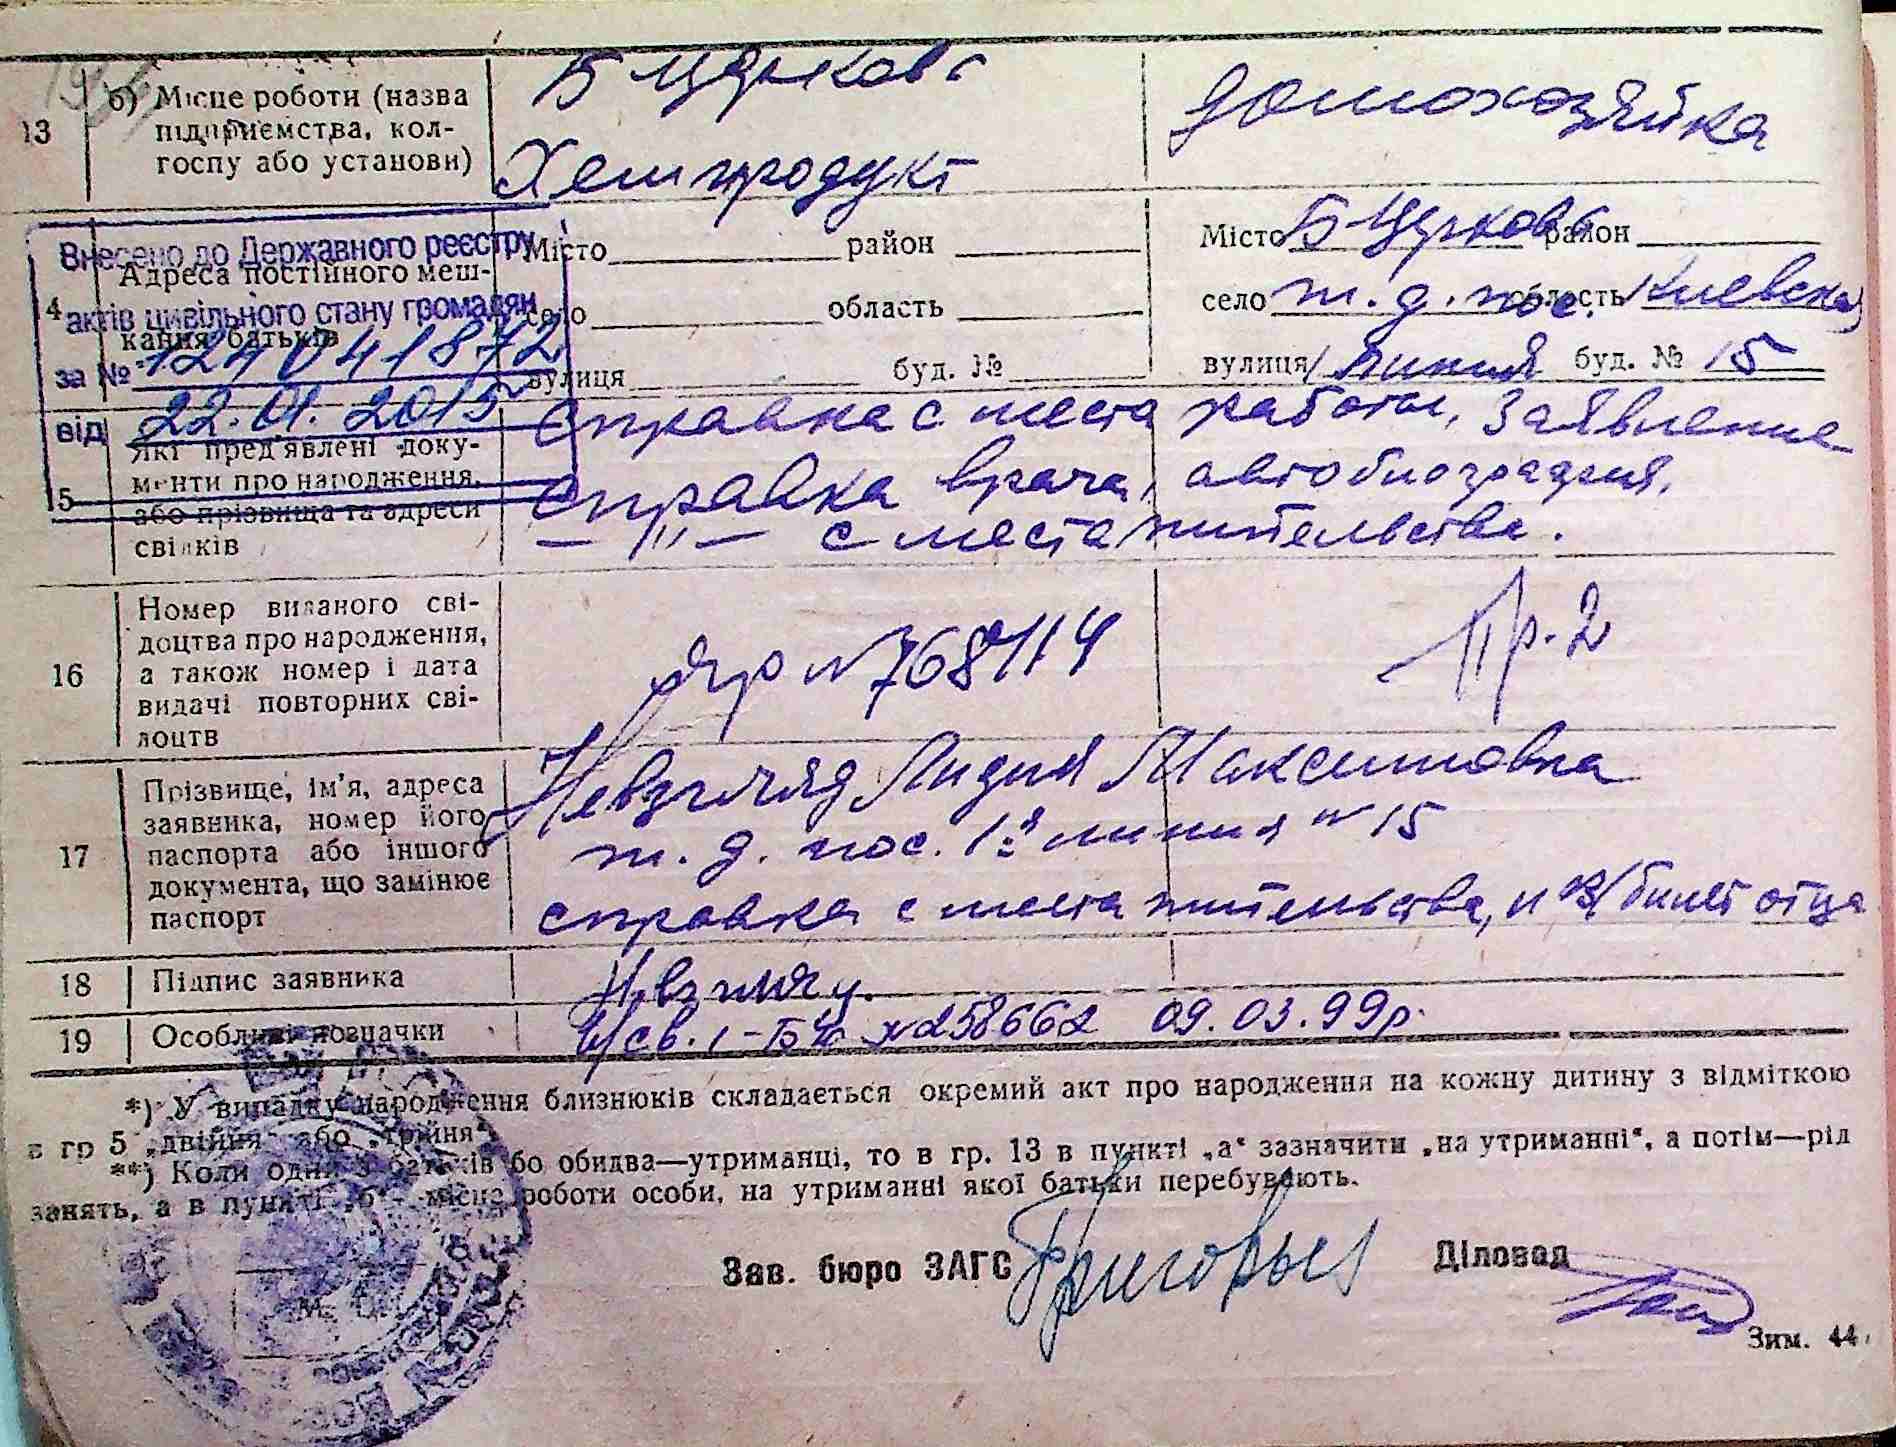 13
б) Місце роботи (назва
підприємства, кол-
госпу або установи)
Б Церковь
Хемпродукт
домохозяйка
Внесено до Державного реєстру
актів цивільного стану громадян
за № 1240041872
від 22.01.2015
4
Адреса постійного меш-
кання батьків
Місто район
село область
вулиця буд. №
Місто Б Церковь район
село ж. д. пос. область Киевская
вулиця 1 линия буд. № 15
15
Які пред'явлені доку-
менти про народження,
або прізвища та адреси
свідків
Справка с места работы, Заявление
справка врача, автобиография,
— " — с места жительства.
16
Номер виданого сві-
доцтва про народження,
а також номер і дата
видачі повторних сві-
доцтв
№ 768114
Пр. 2
17
Прізвище, ім'я, адреса
заявника, номер його
паспорта або іншого
документа, що замінює
паспорт
Невзгляд Лидия Максимовна
ж. д. пос. 1я линия № 15
справка с места жительства, и в/билет отца
18
Підпис заявника
Невзгляд
19
Особливі позначки
П/св. 1-БК №258662 09.03.99р.
*) У випадку народження близнюків складається окремий акт про народження на кожну дитину з відміткою
в гр 5 „двійня" або „трійня".
**) Коли один з батьків бо обидва—утриманці, то в гр. 13 в пункті „а" зазначити „на утриманні", а потім—рід
занять, а в пункті „б"— місце роботи особи, на утриманні якої батьки перебувають.
Зав. бюро ЗАГС
Діловод
М. П.
Зим. 44